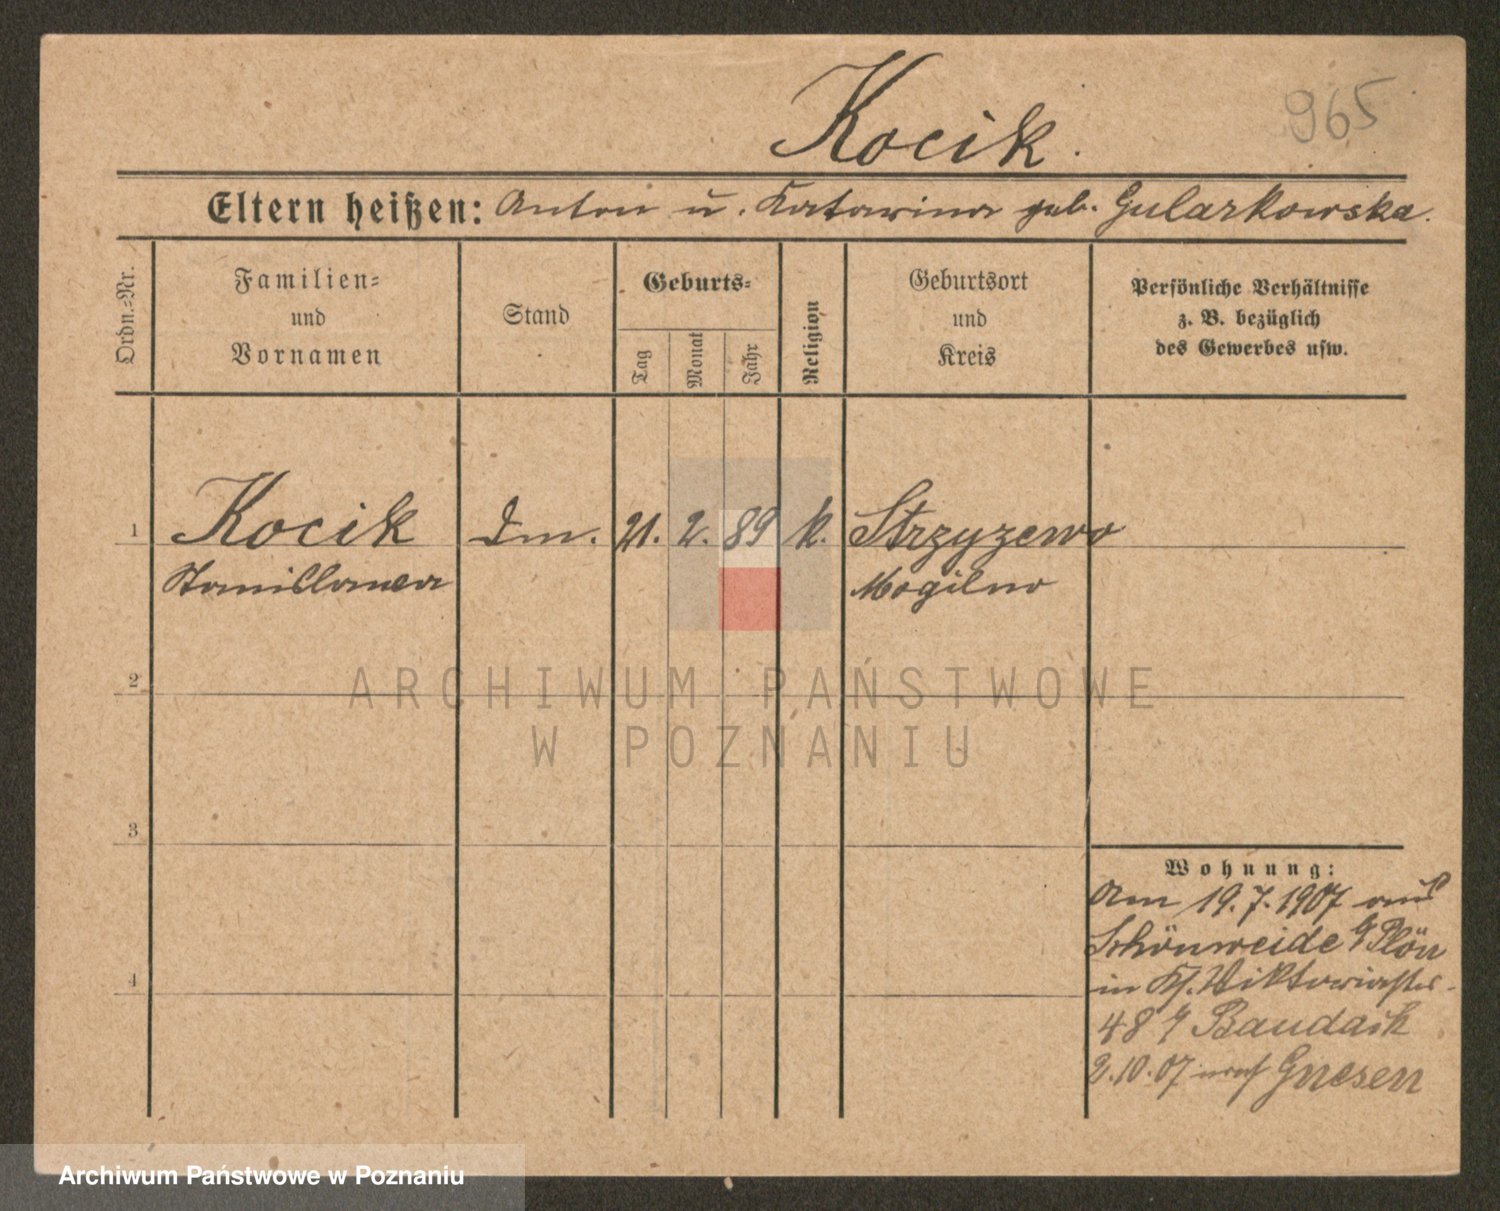 Kocik.
965
Eltern heißen: Anton u. Katarina geb. Gularkowska.
Ordn.-Nr.
Familien-
und
Vornamen
Stand
Geburts-
Tag
Monat
Jahr
Religion
Geburtsort
und
Kreis
Persönliche Verhältnisse
z. B. bezüglich
des Gewerbes usw.
1 Kocik Dm. 21. 2. 89 k. Strzyzewo
Stanislawa Mogilno
2
ARCHIWUM PAŃSTWOWE
W POZNANIU
3
Wohnung:
Am 19.7.1907 aus
Schönweide Plön
in Viktoriastr.
48 Baudach
4
2.10.07 nach Gnesen
Archiwum Państwowe w Poznaniu